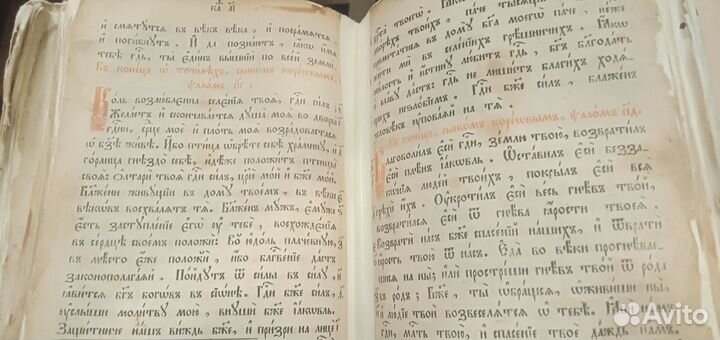 и҆ смѧтꙋтсѧ въ вѣкъ вѣка, и҆ посрамѧтсѧ
и҆ погибнꙋтъ. И҆ да познаютъ, ꙗ҆кѡ и҆мѧ
тебѣ гдⷭ҇ь, ты̀ є҆динъ вышнїй по всей земли.
Въ конецъ ѡ҆ точилѣхъ, сыномъ корео҆вымъ,
ѱаломъ п҃г
Коль возлюбленна селенїѧ твоѧ, гдⷭ҇и силъ,
Желаетъ и҆ скончаваетсѧ дꙋша моѧ во дворы
гдⷭ҇ни, срⷣце моѐ и҆ плоть моѧ возрадовастасѧ
ѡ҆ бз҃ѣ живѣ. И҆бо птица ѡ҆брѣте себѣ храминꙋ, и҆
горлица гнѣздо себѣ, и҆дѣже положитъ птенцы
своѧ: Ѻ҆лтари твоѧ гдⷭ҇и силъ, цр҃ю мой и҆ бж҃е мой.
Бл҃жени живꙋщїи въ домꙋ твоемъ, въ вѣки
вѣкѡвъ восхвалѧтъ тѧ. Бл҃женъ мꙋжъ, є҆мꙋже
є҆сть застꙋпленїе є҆гѡ̀ ᲂу҆ тебе, восхожденїѧ
въ сердцѣ своемъ положи: Во ю҆доль плачевнꙋю,
въ мѣсто є҆же положи, и҆бо блгⷭ҇венїе дастъ
законополагаѧй. Пойдꙋтъ ѿ силы въ силꙋ,
ꙗ҆витсѧ бг҃ъ богѡвъ въ сїѡнѣ. Гдⷭ҇и бж҃е силъ,
ᲂу҆слыши молитвꙋ мою, внꙋши бж҃е і҆аковль.
Защитниче нашъ виждь бж҃е, и҆ призри на лице
твоегѡ. Ꙗ҆кѡ
дворѣхъ твоихъ, паче тысѧщъ
приметатисѧ въ домꙋ бг҃а моегѡ паче, неже
ми въ селенїихъ грѣшничихъ. Ꙗ҆кѡ
милость и҆ и҆стинꙋ любитъ гдⷭ҇ь, бг҃ъ благодать
и҆ славꙋ дастъ: гдⷭ҇ь не лишитъ благихъ ходѧ
незлобїемъ. Гдⷭ҇и бж҃е силъ, блаженъ
человѣкъ ᲂу҆поваѧй на тѧ.
Въ конецъ, сыномъ корео҆вымъ, ѱаломъ п҃д
Благоволилъ є҆сѝ гдⷭ҇и, землю твою, возвратилъ
є҆сѝ плѣнъ і҆аковль. Ѡ҆ставилъ є҆сѝ безза
конїѧ людей твоихъ, покрылъ є҆сѝ всѧ
грѣхи и҆хъ. Оу҆кротилъ є҆сѝ весь гнѣвъ твой,
возвратилсѧ є҆сѝ ѿ гнѣва ꙗ҆рости твоеѧ.
Возврати насъ бж҃е спасенїй нашихъ, и҆ ѿврати
ꙗ҆рость твою ѿ насъ. Є҆да во вѣки прогнѣвае
шисѧ на ны̀; и҆ли простреши гнѣвъ твой ѿ рода
въ родъ; Бж҃е, ты̀ ѡ҆бращсѧ, ѡ҆живиши ны̀,
и҆ людїе твои возвеселѧтсѧ ѡ҆ тебѣ. Ꙗ҆ви намъ
гдⷭ҇и, млⷭ҇ть твою, и҆ спасенїе твоѐ даждь намъ.
Avito